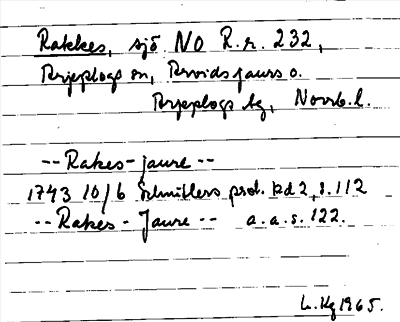 Rakkes, sjö NO R.r. 232,
Arjeplogs sn, Arvidsjaurs o.
Arjeplogs tg, Norrb.l.
-- Rakes-jaure --
1743 10/6 Schnitlers prot. bd 2, s. 112
-- Rakes - Jaure -- a.a.s. 122.
L. Hg 1965.